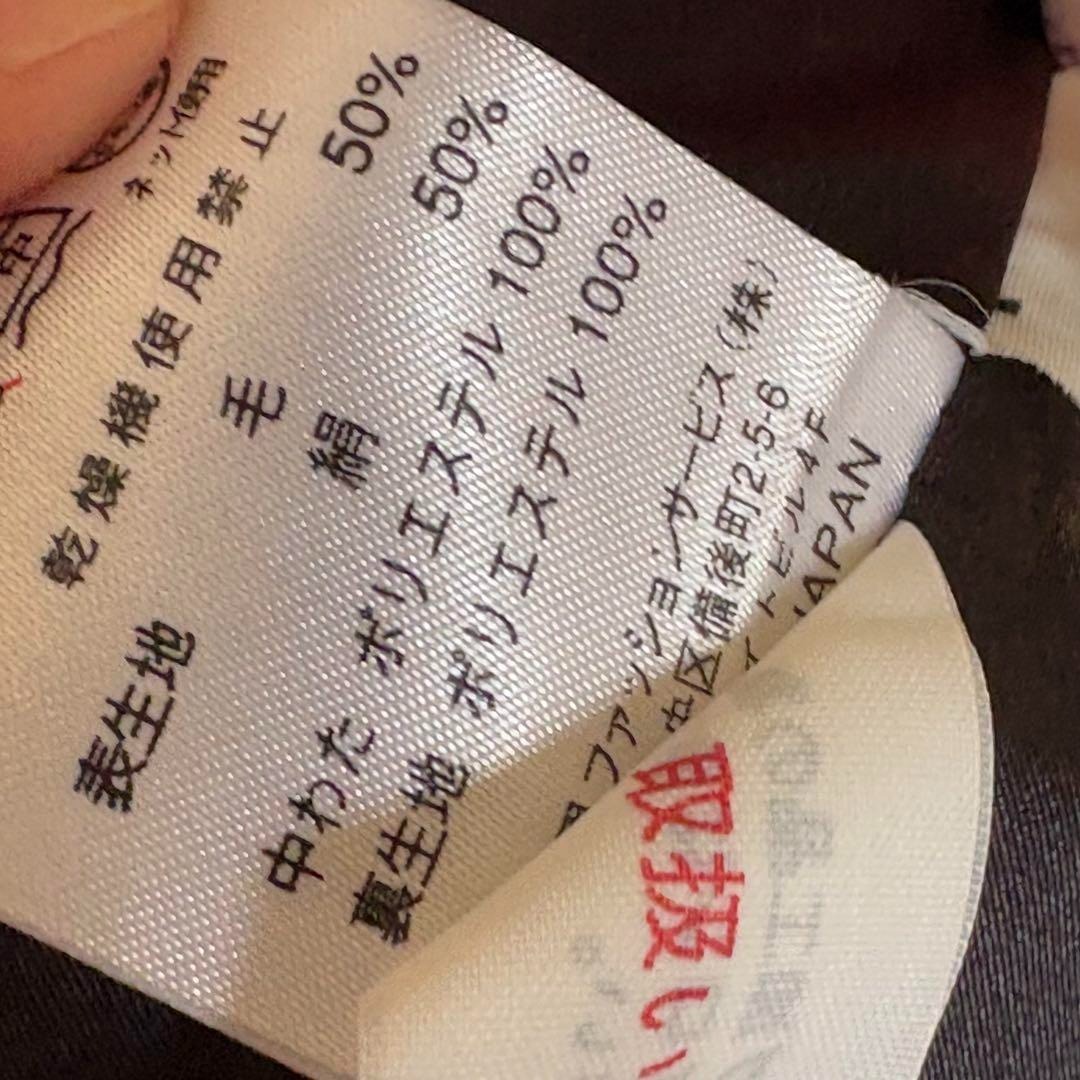 中
ネット使用
乾燥機使用禁止
表生地 毛 50%
絹 50%
中わた ポリエステル 100%
裏生地 ポリエステル 100%
ファッションサービス(株)
中区備後町2-5-6
イトビル4F
JAPAN
取扱い